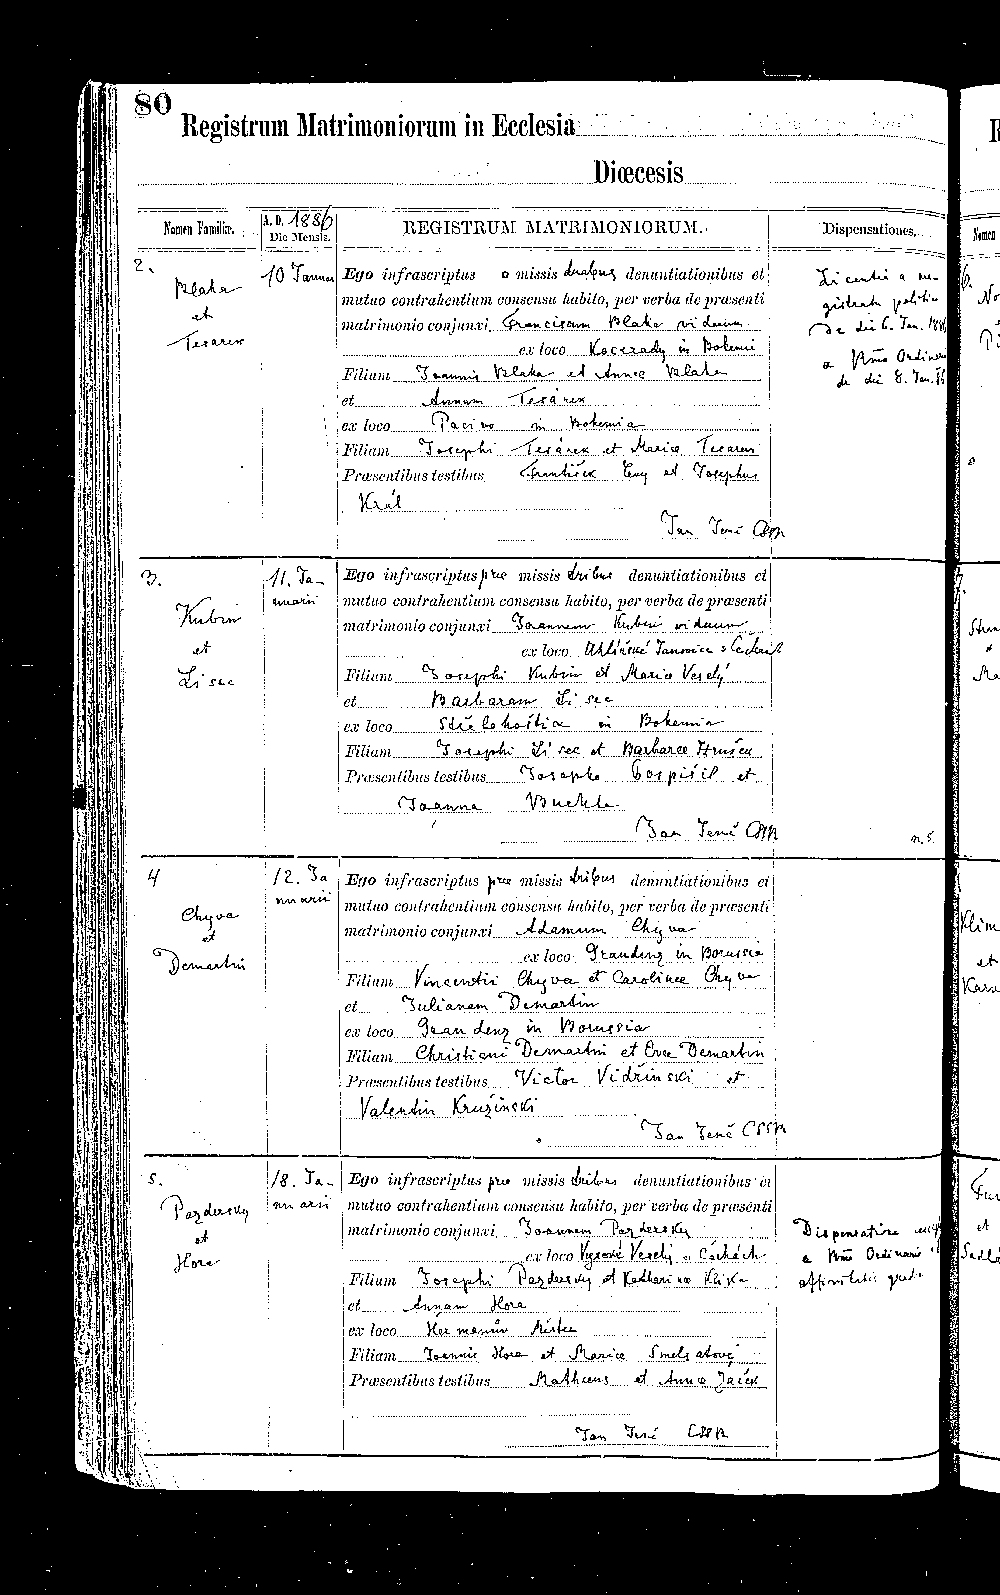 80
Registrum Matrimoniorum in Ecclesia
Diœcesis
Nomen Familiæ.
A. D. 1886
Die Mensis.
REGISTRUM MATRIMONIORUM.
Dispensationes.
2.
Blaha
et
Tesarek
10 Januar
Ego infrascriptus o missis duabus denuntiationibus et
mutuo contrahentium consensu habito, per verba de præsenti
matrimonio conjunxi Franciscum Blaha viduum
ex loco Kocerady in Bohemi
Filium Joannis Blaha et Annæ Blaha
et Annam Tesárek
ex loco Pacivo in Bohemia
Filiam Josephi Tesárek et Mariæ Tesarek
Præsentibus testibus František et Josephus
Král
Jan Jené CSSR
Licentia a
gistratu politic
de die 6. Jan. 1886
a Rmo Ordinari
de die 8. Jan. 86
3.
Kubin
et
Lisec
11. Ja-
nuarii
Ego infrascriptus præ missis tribus denuntiationibus et
mutuo contrahentium consensu habito, per verba de præsenti
matrimonio conjunxi Joannem Kubin viduum
ex loco Uhlířské Janovice v Čechách
Filium Josephi Kubin et Maria Veselý
et Barbaram Lisec
ex loco Střelohoštice in Bohemia
Filiam Josephi Lisec et Barbaræ Hrušca
Præsentibus testibus Josepho Pospíšil et
Joanne Buchta
Jan Jené CSSR
n. 5.
4
Chyva
et
Demartin
12. Ja
nuarii
Ego infrascriptus præ missis tribus denuntiationibus et
mutuo contrahentium consensu habito, per verba de præsenti
matrimonio conjunxi Adamum Chyva
ex loco Graudenz in Borussia
Filium Vincentii Chyva et Carolinæ Chyva
et Julianam Demartin
ex loco Graudenz in Borussia
Filiam Christiani Demartin et Evæ Demartin
Præsentibus testibus Victor Vidřinski et
Valentin Kružinski
Jan Jené CSSR
5.
Pazdersky
et
Hora
18. Ja-
nuarii
Ego infrascriptus præ missis tribus denuntiationibus et
mutuo contrahentium consensu habito, per verba de præsenti
matrimonio conjunxi Joannem Pazdersky
ex loco Vysoké Veselý v Čechách
Filium Josephi Pazdersky et Katharinæ Kliska
et Annam Hora
ex loco Hermanův Městec
Filiam Joannis Hora et Mariæ
Præsentibus testibus Mathæus et Anna Jačék
Jan Jené CSSR
Dispensatione
a Rmo Ordinario
affinitatis gradu